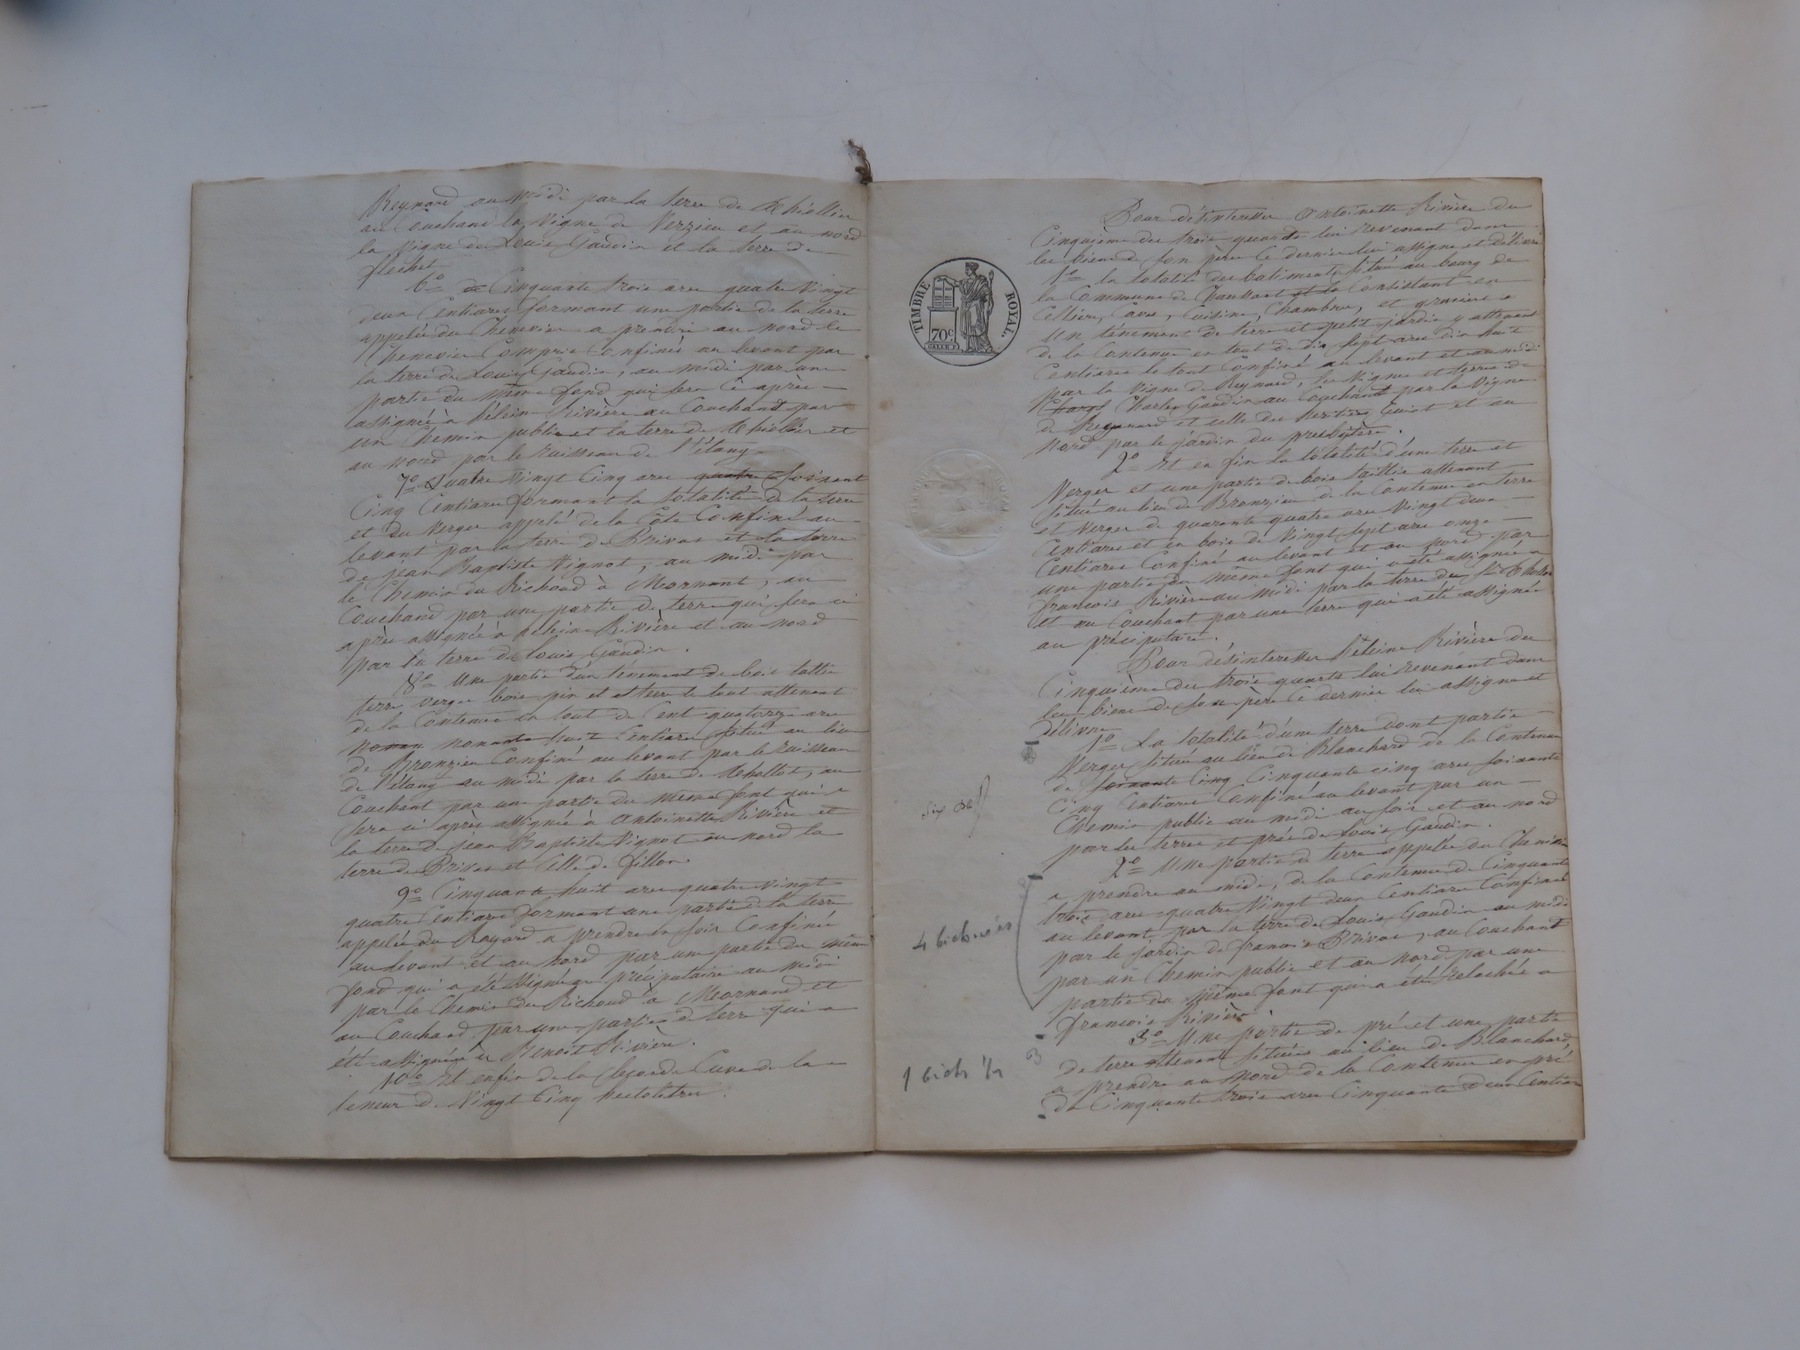 Reynard au midi par la terre de Thiollier
au Couchand la Vigne de Verzieu et au nord
la Vigne de Louis Gaudin et la terre de
flechet
6º Cinquante trois ares quatre Vingt
deux Centiares formant une partie de la terre
appelée du Chenevier a prendre au nord le
Chenevier Compris Confinés au levant par
la terre de Louis Gaudin, au midi par une
partie du même fond qui sera ci après
assignée à héleine Rivière au Couchand par
un Chemin public et la terre de Thiollier et
au nord par le ruisseau de l'étang
7º Quatre Vingt Cinq ares quatre soixant
Cinq Centiares formant la totalité de la terre
et du Verger appelé de la Côte Confiné au
levant par la terre de Privas et la terre
de jean Baptiste Vignot, au midi par
le Chemin du Richoud à Mornant, au
Couchand par une partie de terre qui sera ci
après assignée à héleine Rivière et au nord
par la terre de Louis Gaudin.
8º Une partie d'un tenement de bois taillis
terre, verger bois pin et et terre le tout attenant
de la Contenue en tout de Cent quatorze ares
nonante huit Centiares situé au lieu
de Bronzieu Confiné au levant par le ruisseau
de l'étang au midi par la terre de, au
Couchant par une partie du même font qui
sera ci après assignée à antoinette Rivière et
la terre de jean Baptiste Vignot au nord la
terre de Privas et Celle de fillon
9º Cinquante huit ares quatre Vingt
quatre Centiares formant une partie de la terre
appelée du Rayard a prendre en soir Confinée
au levant et au Nord par une partie du même
fond qui a été assignée au préciputaire au midi
par le Chemin du Richoud à Mornand et
au Couchand par une partie de terre qui a
été assignée à Benoit Rivière.
10º Et enfin de la Seconde Cuve de la
teneur de Vingt Cinq hectolitres.
TIMBRE ROYAL
70c
Pour désinteresser Antoinette Rivière du
Cinquième des trois quarts lui Revenant dans
les biens de son père Ce dernier lui assigne et délivre
1º la totalité des batiments situé au bourg de
la Commune de Chaussant et la Consistant en
Cellier, Cave, Cuisine, Chambre, et greniers
Un ténement de terre et petit jardin y attenant
de la Contenue en tout de dix sept ares dix huit
Centiares le tout Confiné au levant et au midi
par la Vigne de Reynard, les Vignes et terres de
Charles Gaudin au Couchant par la Vigne
de Reynard et celle des heritiers Guiot et au
Nord par le jardin du presbitère.
2º Et en fin la totalité d'une terre et
Verger et une partie de bois taillis attenant
situé au lieu de Bronzieu de la Contenue en terre
et Verger de quarante quatre ares Vingt deux
Centiares et en bois de Vingt sept ares onze
Centiares Confiné au levant et au nord par
une partie du même font qui a été assignée a
francois Rivière au midi par la terre de
et au Couchant par une terre qui a été assignée
au préciputaire.
Pour désinteresser héleine Rivière du
Cinquième des trois quarts lui revenant dans
les biens de son père Ce dernier lui assigne et
délivre
1º La totalité d'une terre dont partie
Verger située au lieu de Blanchard de la Contenue
de soixante Cinq Cinquante cinq ares soixante
Cinq Centiares Confiné au levant par un
Chemin public au midi au soir et au nord
par les terres et prés de Louis Gaudin.
2º Une partie de terre appelée du Chenevier
a prendre au midi, de la Contenue de Cinquante
trois ares quatre Vingt deux Centiares Confinée
au levant par la terre de Louis Gaudin au midi
par le jardin de francois Privas, au Couchant
par un Chemin public et au nord par une
partie du même font qui a été relachée a
francois Rivière
3º Une partie de pré et une partie
de terre attenant situées au lieu de Blanchard,
a prendre au Nord de la Contenue en pré
de Cinquante trois ares Cinquante deux Centiares
4 bicherées
1 bich ½